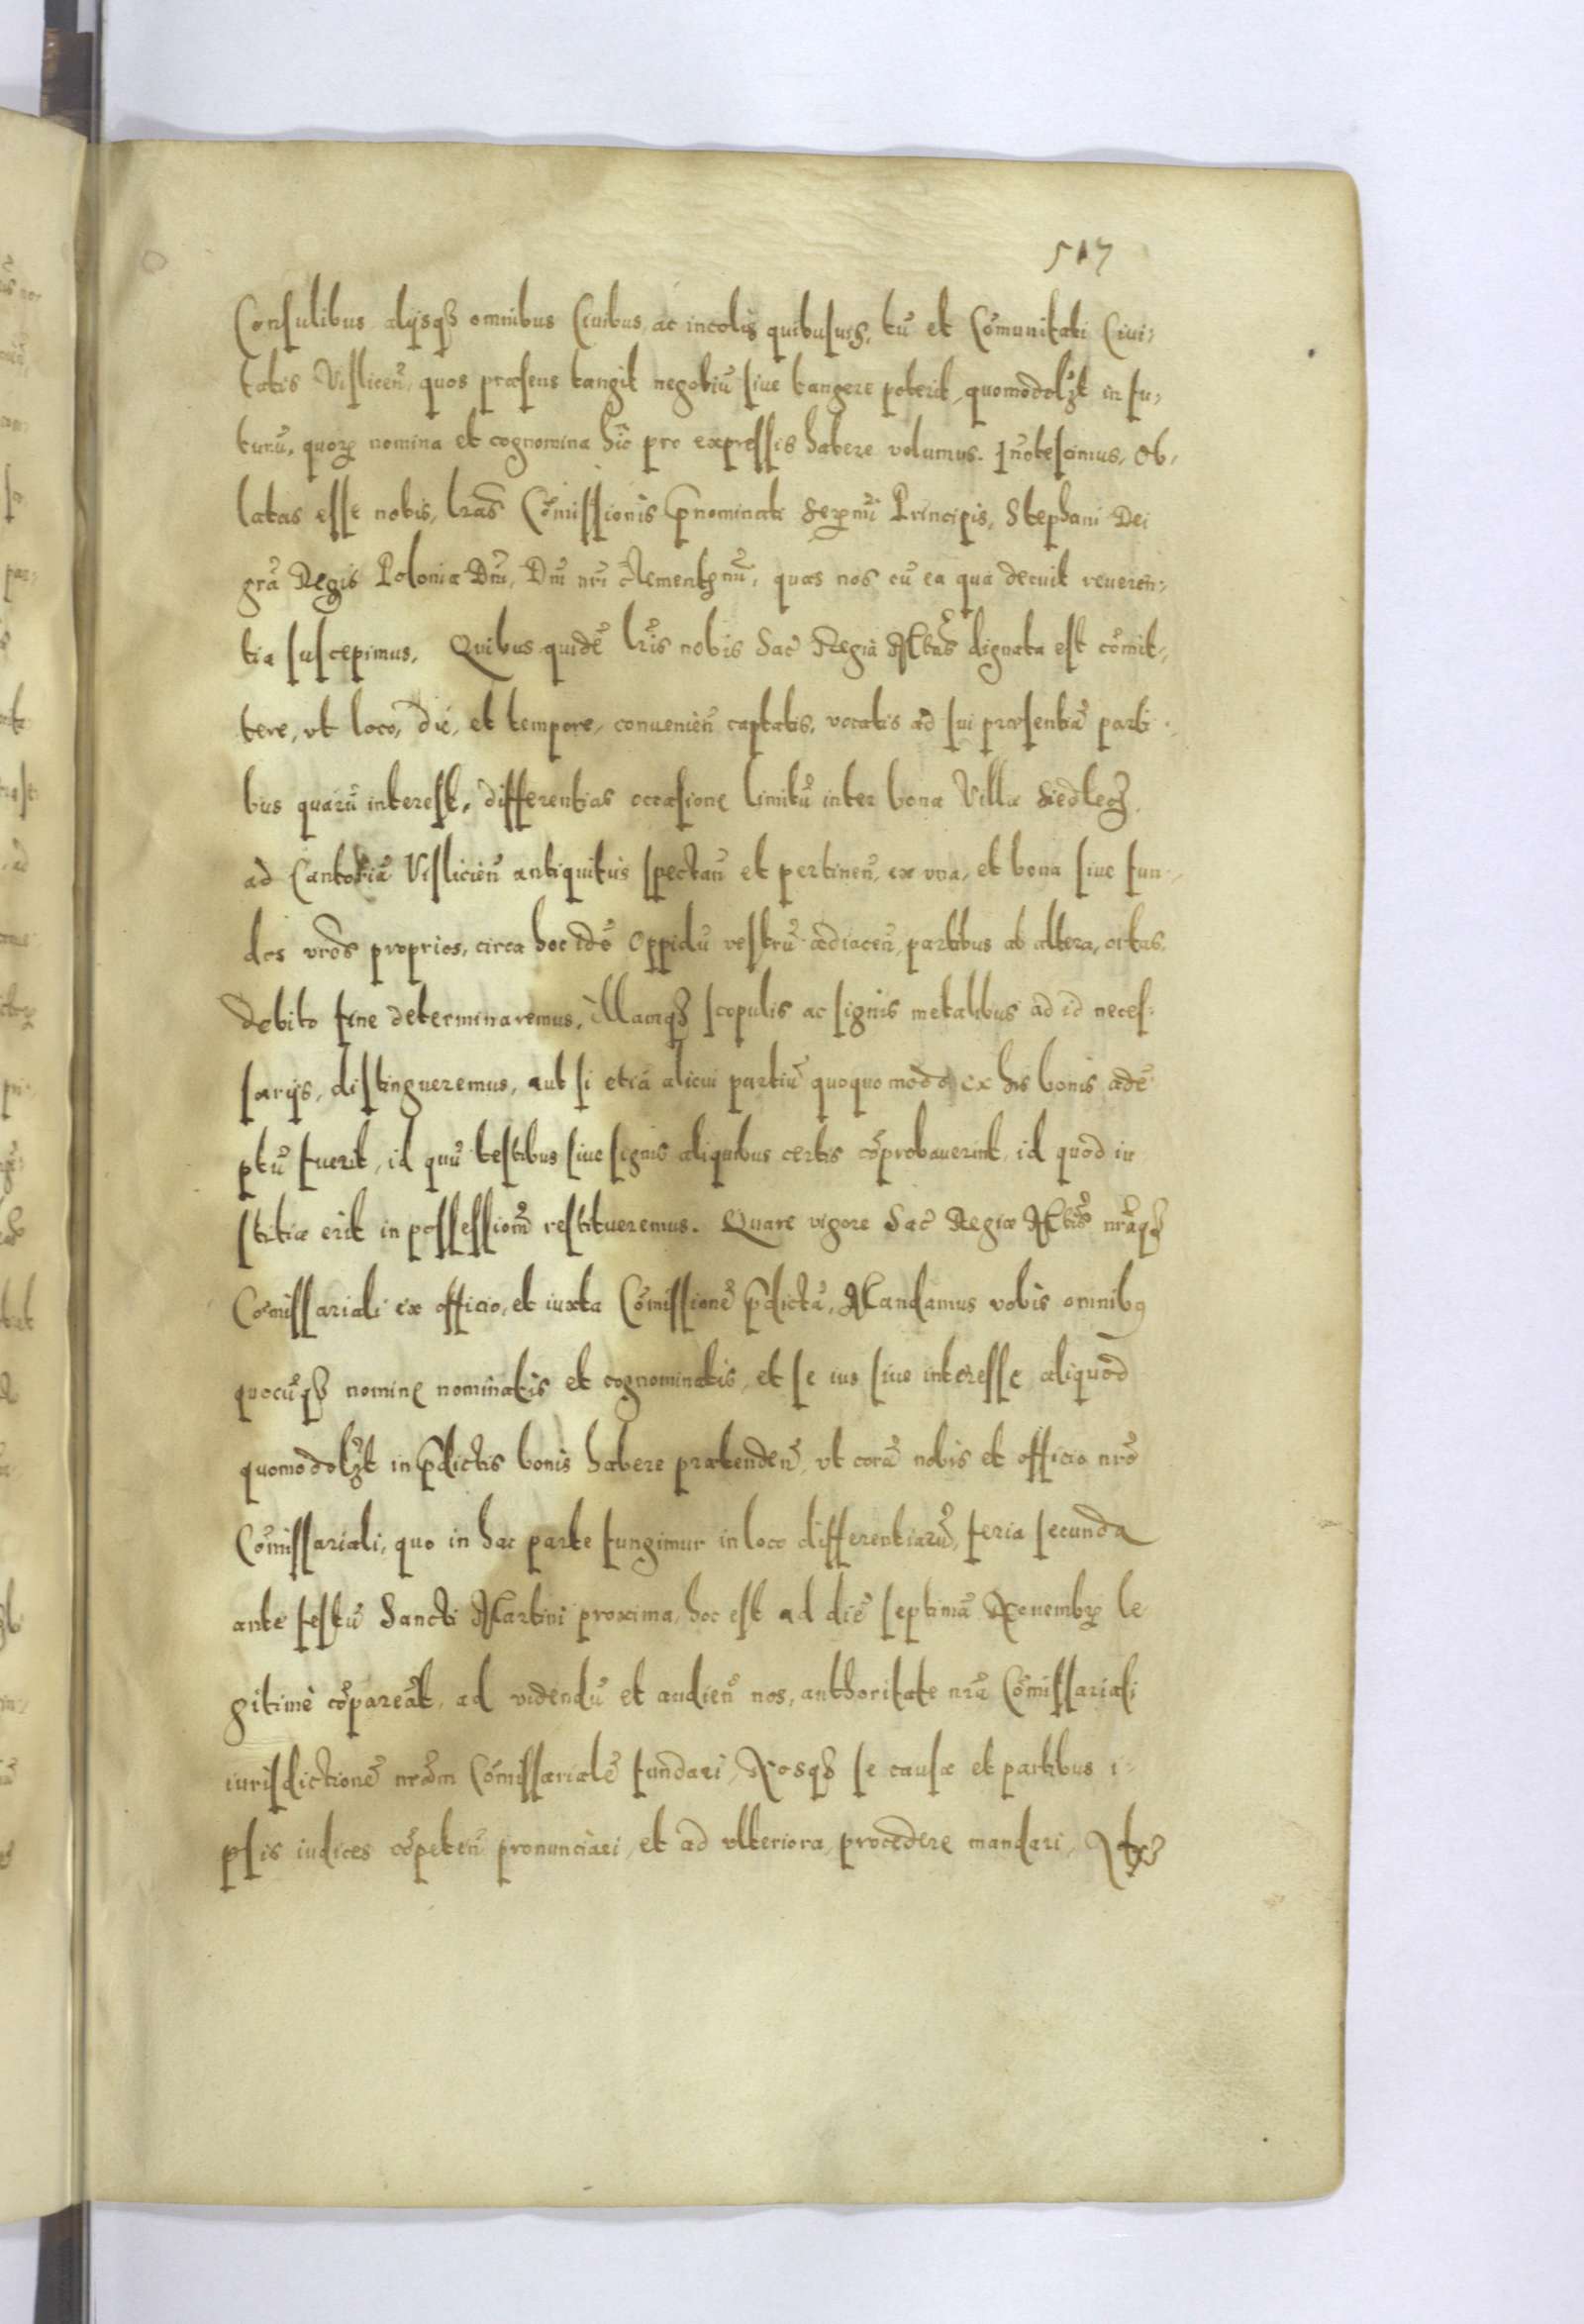 517
Consulibus alijsqȝ omnibus Ciuibus, ac incolis quibusuis, tū et Cōmunitati Ciui-
tatis Vislicen̄, quos præsens tangit negotiū siue tangere poterit, quomodolȝt in fu-
turū, quorꝝ nomina et cognomina hic pro expressis habere volumus. Īnotescimus, Ob-
latas esse nobis, lr̄as Cōmissionis p̄nominati Serꝫmi Principis, Stephani Dei
gr̄a Regis Poloniæ Dn̄i, Dn̄i nr̄i clementꝫmi, quas nos cū ea qua decuit reueren-
tia suscepimus, Quibus quidē lr̄is nobis Sac̄ Regia Mtas dignata est cōmit-
tere, vt loco, die, et tempore, conuenien̄ captatis, vocatis ad sui præsentiā parti
bus quarū interest, differentias occasione limitū inter bona Villæ Siedlecȝ
ad Cantoriā Vislicien̄ antiquitus spectan̄ et pertinen̄, ex vna, et bona siue fun-
dos vr̄os proprios, circa hoc idē Oppidū vestrū adiacen̄, partibus ab altera, ortas
debito fine determinaremus, illamqȝ scopulis ac signis metalibus ad id neces-
sarijs, distingueremus, aut si etiā alicui partiū quoquo modo ex his bonis adē
ptū fuerit, id quū testibus siue signis aliquibus certis cōprobauerint, id quod iu
stitiæ erit in possessionē restitueremus. Quare vigore Sac̄ Regiæ Mtis nr̄aqȝ
Cōmissariali ex officio, et iuxta Cōmissionē p̄dictā, Mandamus vobis omnibꝰ
quocūqȝ nomine nominatis et cognominatis, et se ius siue interesse aliquod
quomodolȝt in p̄dictis bonis habere prætenden̄, vt corā nobis et officio nr̄o
Cōmissariali, quo in hac parte fungimur in loco differentiarū, feria secunda
ante festū Sancti Martini proxima, hoc est ad diē septimā Nouembrꝫ le
gitimè cōpareāt, ad videndū et audien̄ nos, authoritate nr̄a Cōmissariali
iurisdictionē nr̄am Cōmissarialē fundari, Nosqȝ se causæ et partibus i-
psis iudices cōpeten̄ pronunciari, et ad vlteriora procedere mandari,